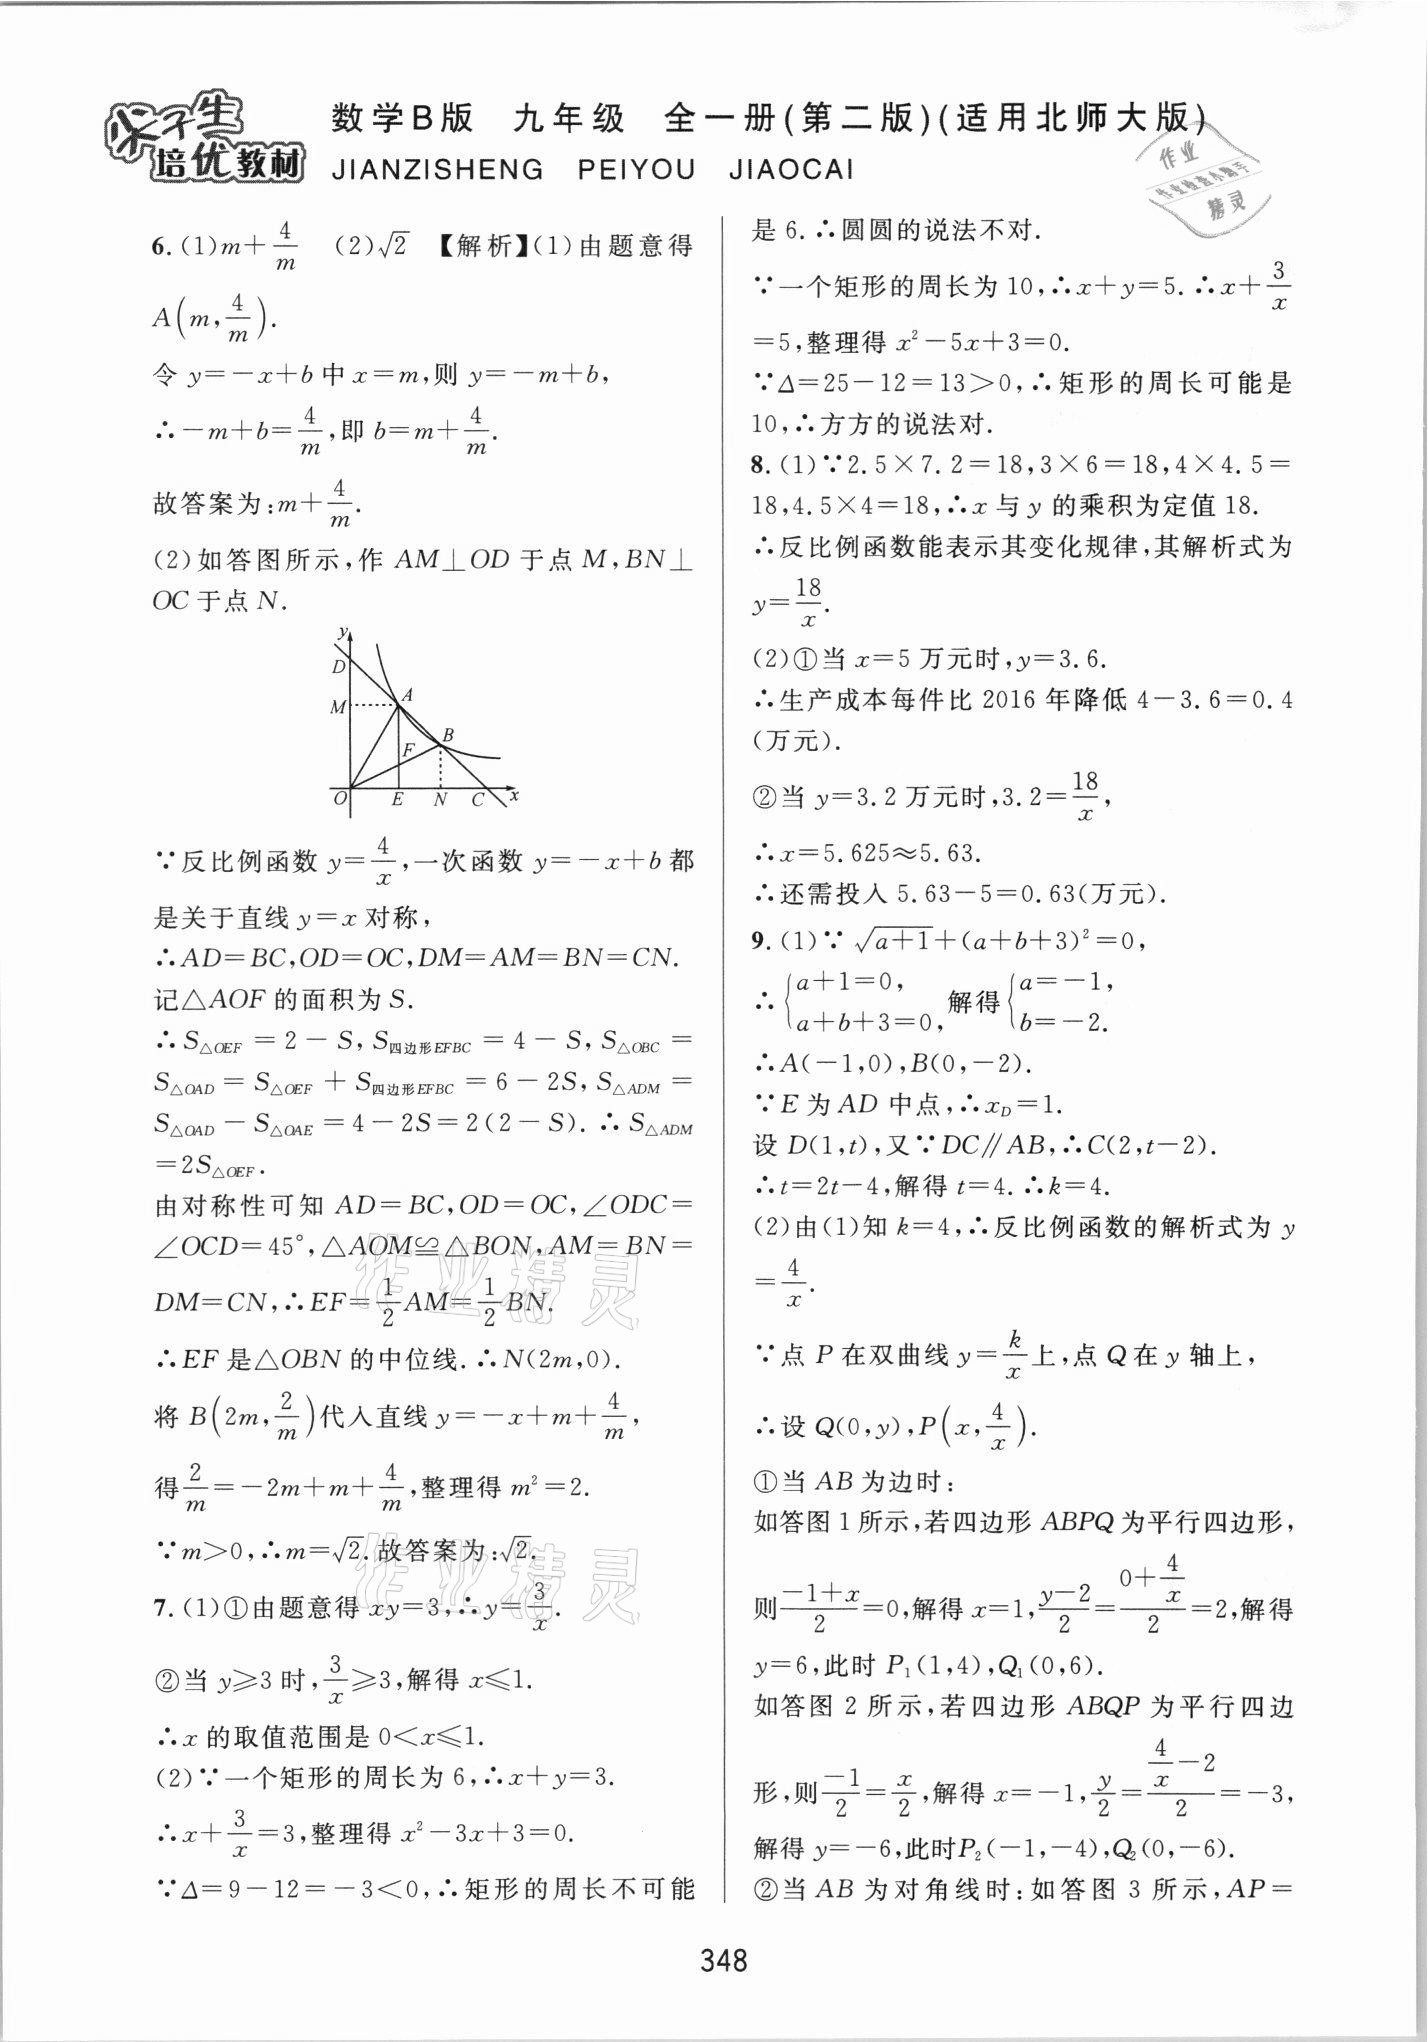 尖子生
培优教材
数学B版 九年级 全一册(第二版)(适用北师大版)
JIANZISHENG PEIYOU JIAOCAI
作业
作业检查小助手
精灵
6.(1)m+4/m (2)√2 【解析】(1)由题意得
A(m,4/m).
令 y=-x+b 中 x=m,则 y=-m+b,
∴-m+b=4/m,即 b=m+4/m.
故答案为:m+4/m.
(2)如答图所示,作 AM⊥OD 于点 M,BN⊥
OC 于点 N.
y
D
M
A
B
F
O E N C x
∵反比例函数 y=4/x,一次函数 y=-x+b 都
是关于直线 y=x 对称,
∴AD=BC,OD=OC,DM=AM=BN=CN.
记△AOF 的面积为 S.
∴S△OEF=2-S,S四边形EFBC=4-S,S△OBC=
S△OAD=S△OEF+S四边形EFBC=6-2S,S△ADM=
S△OAD-S△OAE=4-2S=2(2-S).∴S△ADM
=2S△OEF.
由对称性可知 AD=BC,OD=OC,∠ODC=
∠OCD=45°,△AOM≌△BON,AM=BN=
DM=CN,∴EF=1/2AM=1/2BN.
∴EF 是△OBN 的中位线.∴N(2m,0).
将 B(2m,2/m)代入直线 y=-x+m+4/m,
得2/m=-2m+m+4/m,整理得 m²=2.
∵m>0,∴m=√2.故答案为:√2.
7.(1)①由题意得 xy=3,∴y=3/x.
②当 y≥3 时,3/x≥3,解得 x≤1.
∴x 的取值范围是 0<x≤1.
(2)∵一个矩形的周长为 6,∴x+y=3.
∴x+3/x=3,整理得 x²-3x+3=0.
∵Δ=9-12=-3<0,∴矩形的周长不可能
是 6.∴圆圆的说法不对.
∵一个矩形的周长为 10,∴x+y=5.∴x+3/x
=5,整理得 x²-5x+3=0.
∵Δ=25-12=13>0,∴矩形的周长可能是
10,∴方方的说法对.
8.(1)∵2.5×7.2=18,3×6=18,4×4.5=
18,4.5×4=18,∴x 与 y 的乘积为定值 18.
∴反比例函数能表示其变化规律,其解析式为
y=18/x.
(2)①当 x=5 万元时,y=3.6.
∴生产成本每件比 2016 年降低 4-3.6=0.4
(万元).
②当 y=3.2 万元时,3.2=18/x,
∴x=5.625≈5.63.
∴还需投入 5.63-5=0.63(万元).
9.(1)∵√(a+1)+(a+b+3)²=0,
∴{a+1=0, a+b+3=0, 解得{a=-1, b=-2.
∴A(-1,0),B(0,-2).
∵E 为 AD 中点,∴xD=1.
设 D(1,t),又∵DC∥AB,∴C(2,t-2).
∴t=2t-4,解得 t=4.∴k=4.
(2)由(1)知 k=4,∴反比例函数的解析式为 y
=4/x.
∵点 P 在双曲线 y=k/x上,点 Q 在 y 轴上,
∴设 Q(0,y),P(x,4/x).
①当 AB 为边时:
如答图 1 所示,若四边形 ABPQ 为平行四边形,
则(-1+x)/2=0,解得 x=1,(y-2)/2=(0+4/x)/2=2,解得
y=6,此时 P₁(1,4),Q₁(0,6).
如答图 2 所示,若四边形 ABQP 为平行四边
形,则-1/2=x/2,解得 x=-1,y/2=(4/x-2)/2=-3,
解得 y=-6,此时P₂(-1,-4),Q₂(0,-6).
②当 AB 为对角线时:如答图 3 所示,AP=
作业精灵
作业精灵
348